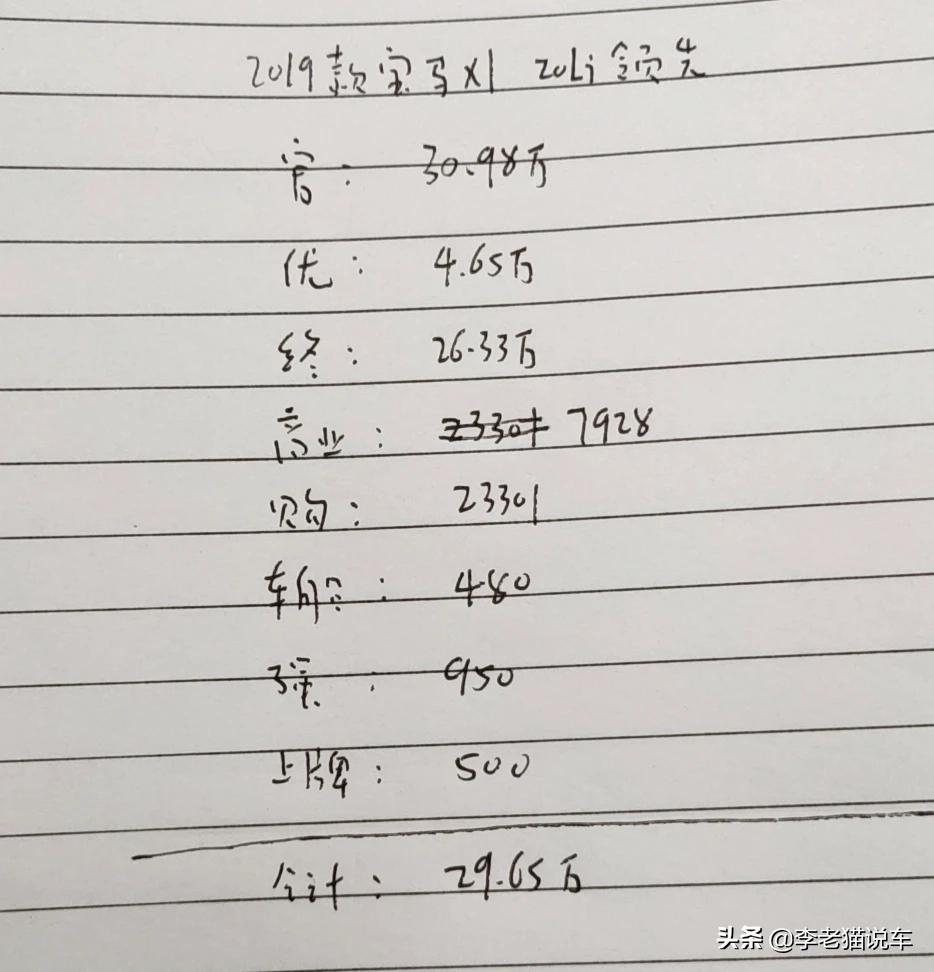 2019款宝马X1 20Li 领先
官: 30.98万
优: 4.65万
终: 26.33万
商业: 23301 7928
购: 23301
车船: 480
交强: 950
上牌: 500
合计: 29.65万
头条 @李老猫说车